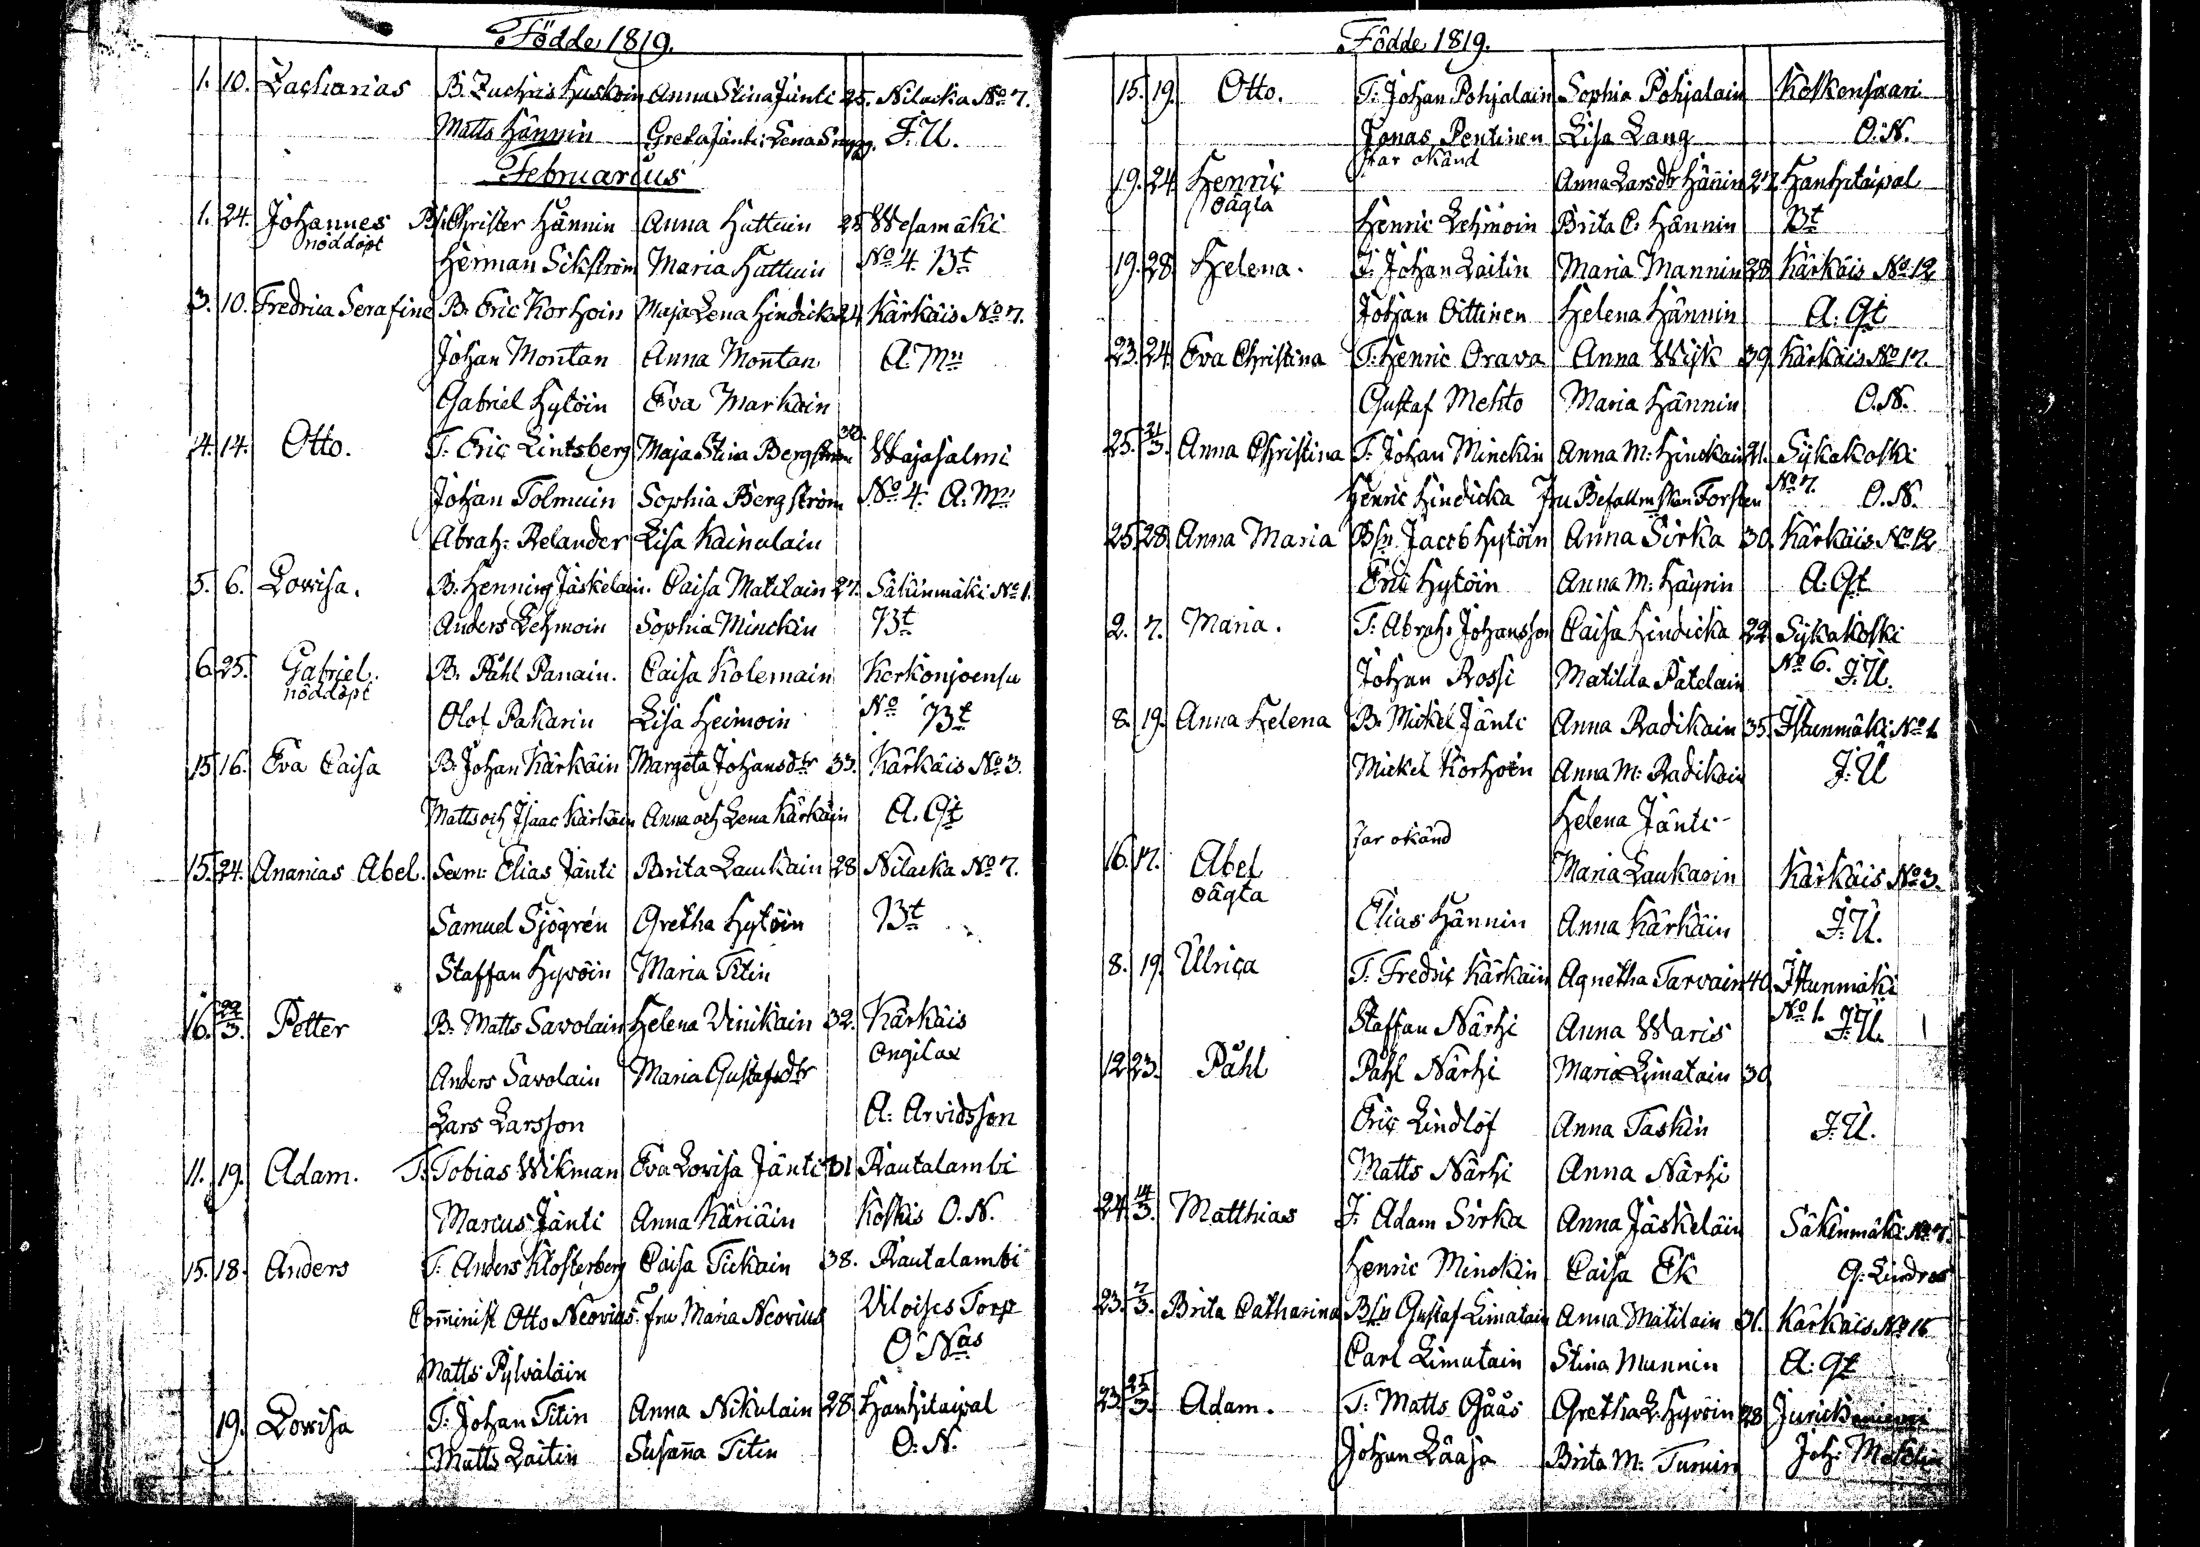 Födde 1819.
1. 10. Zacharias B. Zachris Huskoin Anna Stina Jänti 25. Nilacka No 7.
Matts Hännin Greta Jänti: Lena F: U.
Februarius
1. 24. Johannes Christer Hännin Anna Huttuin 25 Wesamäki
nöddöpt
Herman Sikström Maria Huttuin No 4. Bt
3. 10. Fredrica Serafina B. Eric Korhoin Maja Lena Hindicka 24 Kärkäis No 7.
Johan Montan Anna Montan A. Mn
Gabriel Hytöin Eva Markain
4. 14. Otto. T: Eric Lintsberg Maja Stina Bergström 30 Wajasalmi
Johan Tolmuin Sophia Bergström No 4. A. Mn
Abrah: Relander Lisa Kainulain
5. 6. Lovisa. B. Henning Jäskelain. Caisa Matilain 27. Säkinmäki No 1.
Anders Lehmoin Sophia Minckin Bt
6. 25. Gabriel. B. Påhl Panain. Caisa Kolemain Korkonjoensu
nöddöpt
Olof Pakarin Lisa Heimoin No Bt
15 16. Eva Caisa B. Johan Kärkäin Margeta Johansdtr 33. Kärkäis No 3.
Matts och Isaac Kärkäin Anna och Lena Kärkäin A. Gt
15. 24. Ananias Abel. Elias Jänti Brita Laukain 28 Nilacka No 7.
Samuel Sjögrén Gretha Hytöin Bt
Staffan Hyvöin Maria Titin
16. 22/3. Petter B: Matts Savolain Helena Vinikain 32. Kärkäis
Anders Savolain Maria Gustafsdtr Ongilax
Lars Larsson A: Arvidsson
11. 19. Adam. T: Tobias Wikman Eva Lovisa Jänti 31 Rautalambi
Marcus Jänti Anna Käriäin Koskis O. N.
15. 18. Anders T: Anders Klosterberg Caisa Tickain 38. Rautalambi
Comminist Otto Neovius. fru Maria Neovius Viloises Torp
O Nas
Matts Pylväläin
19. Lovisa T: Johan Titin Anna Nikulain 28 Hanhitaipal
Matts Laitin Susanna Titin O: N.
Födde 1819.
15. 19. Otto. T: Johan Pohjalain Sophia Pohjalain Kolkensaari
Jonas Pentinen Lisa Lang O: N.
19. 24 Henric far okänd Anna Larsdtr Hännin 27 Hanhitaipal
oägta
Henric Lehmoin Brita C. Hännin Bt
19. 28 Helena. Johan Laitin Maria Mannin 28 Kärkäis No 12
Johan Oittinen Helena Hännin A: Gt
23. 24 Eva Christina T: Henric Orava Anna Wijk 39 Kärkäis No 17.
Gustaf Mehto Maria Hännin O. N.
25. 21/3. Anna Christina T: Johan Minckin Anna M: Hinckain 21. Sykäkoski
Henric Hindicka Fru No 7. O. N.
25 28 Anna Maria Bsn Jacob Hytöin Anna Sirka 30. Kärkäis No 12
Eric Hytöin Anna M: Häyrin A: Gt
2. 7. Maria. T: Abrah: Johansson Caisa Hindicka 22 Sykäkoski
Johan Rossi Matilda Patelain No 6. F: U.
8. 19. Anna Helena B: Mickel Jänti Anna Radikain 35. Istunmäki No 1
Mickel Korhoin Anna M: Radikain F: U
Helena Jänti
far okänd
16. 17. Abel Maria Laukarin Kärkäis No 3.
oägta
Elias Hännin Anna Kärkäin F: U.
8. 19. Ulrica T: Fredric Kärkäin Agnetha Tarvain 40 Istunmäki
Staffan Närhi Anna Waris No 1. F: U.
12 23. Påhl Pahl Närhi Maria Limatain 30
Eric Lindlöf Anna Taskin F: U.
Matts Närhi Anna Närhi
24. 14/3. Matthias Adam Sirka Anna Jäskeläin Säkinmäki No 7.
Henric Minckin Caisa Ek G: Lindroos
23. 7/3. Brita Catharina Bsn Gustaf Limatain Anna Matilain 31. Kärkäis No 15
Carl Limatain Stina Munnin A: Gt
23. 25/3. Adam. T: Matts Gåås Gretha L: Hyvöin 28
Johan Lääsä Brita M: Turuin Joh: